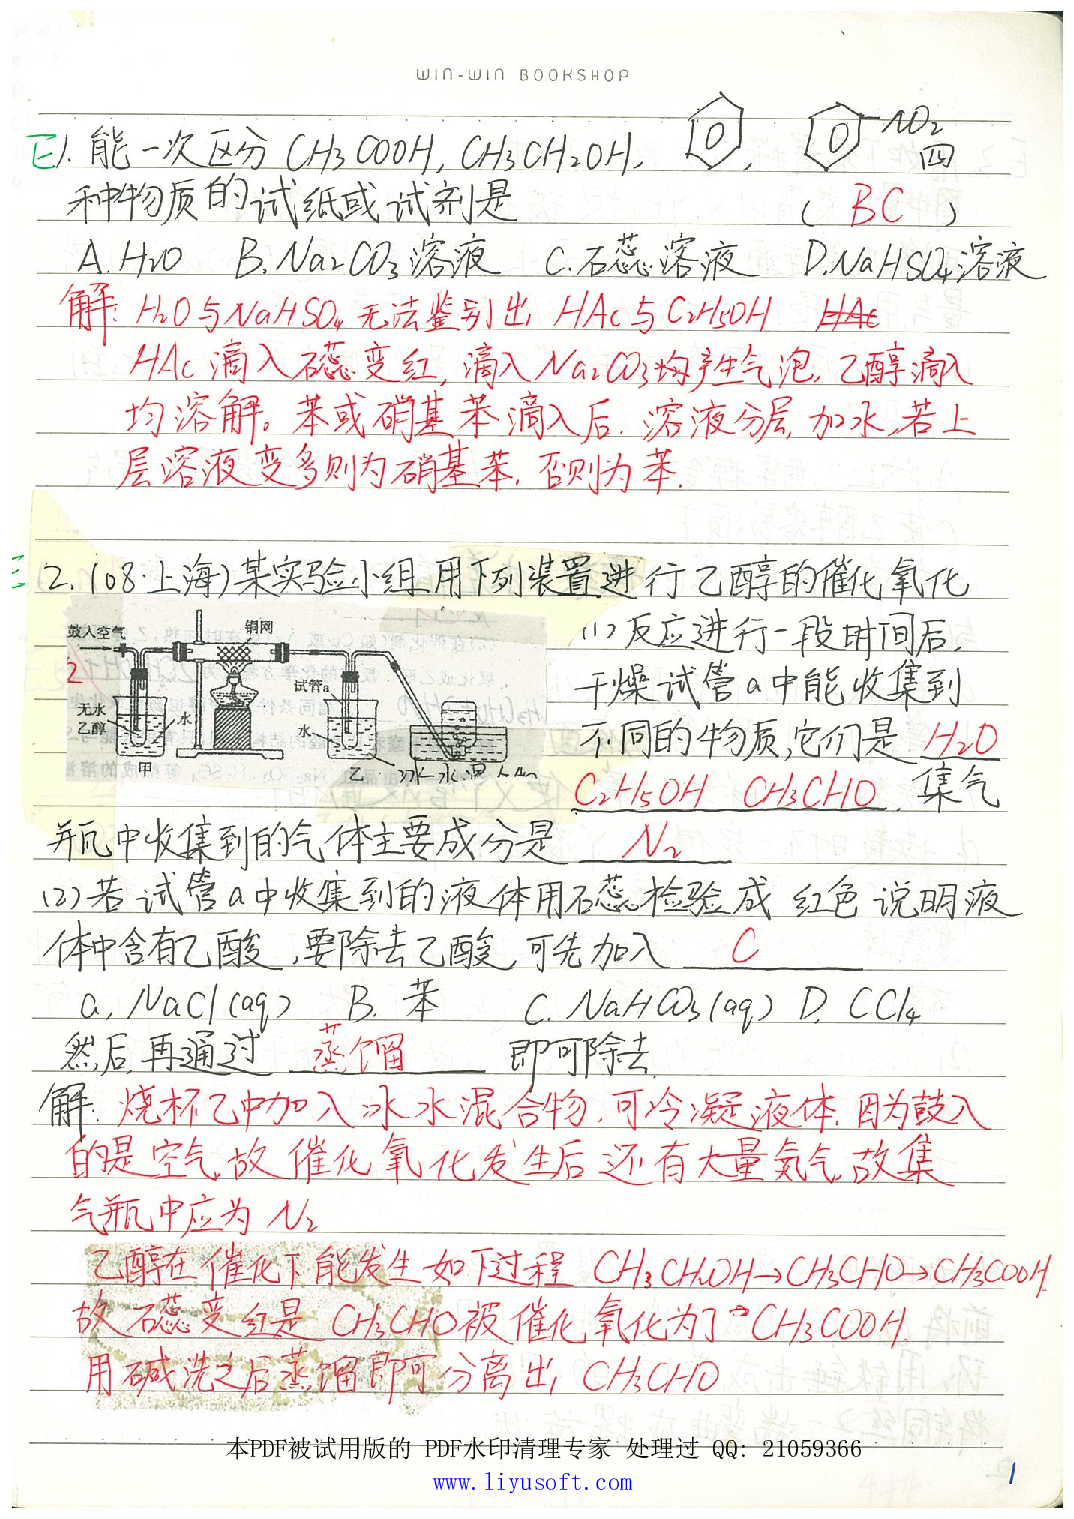 WIN-WIN BOOKSHOP
1. 能一次区分 CH3COOH, CH3CH2OH, , NO2 四
种物质的试纸或试剂是 ( BC )
A. H2O B. Na2CO3溶液 C. 石蕊溶液 D. NaHSO4溶液
解: H2O与NaHSO4无法鉴别出 HAc与C2H5OH HAc
HAc滴入石蕊变红, 滴入Na2CO3均产生气泡. 乙醇滴入
均溶解。苯或硝基苯滴入后. 溶液分层, 加水, 若上
层溶液变多则为硝基苯, 否则为苯.
2. (08·上海)某实验小组用下列装置进行乙醇的催化氧化
(1) 反应进行一段时间后,
干燥试管a中能收集到
不同的物质,它们是 H2O
C2H5OH CH3CHO . 集气
鼓入空气
铜网
2
试管a
无水
乙醇
水
水
甲
乙
瓶中收集到的气体主要成分是 N2
(2) 若试管a中收集到的液体用石蕊检验成 红色 说明液
体中含有乙酸, 要除去乙酸, 可先加入 C
a. NaCl(aq) B. 苯 C. NaHCO3(aq) D. CCl4
然后, 再通过 蒸馏 即可除去.
解: 烧杯乙中加入冰水混合物, 可冷凝液体. 因为鼓入
的是空气, 故催化氧化发生后还有大量氮气, 故集
气瓶中应为 N2
乙醇在催化下能发生如下过程 CH3CH2OH→CH3CHO→CH3COOH.
故石蕊变红是 CH3CHO被催化氧化为了CH3COOH.
用碱洗之后蒸馏即可分离出 CH3CHO
本PDF被试用版的 PDF水印清理专家 处理过 QQ: 21059366
www.liyusoft.com
1